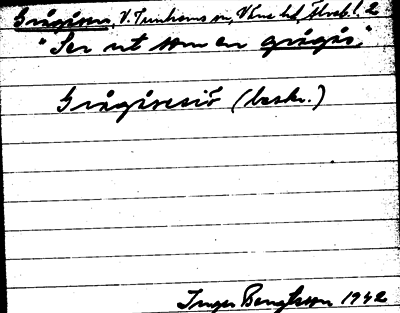 Grågåsen, V. Tunhems sn, Väne hd, Älvsb. l. 2
"Ser ut som en grågås."
Grågåsesiö (beskr.)
Inger Bengtsson 1942